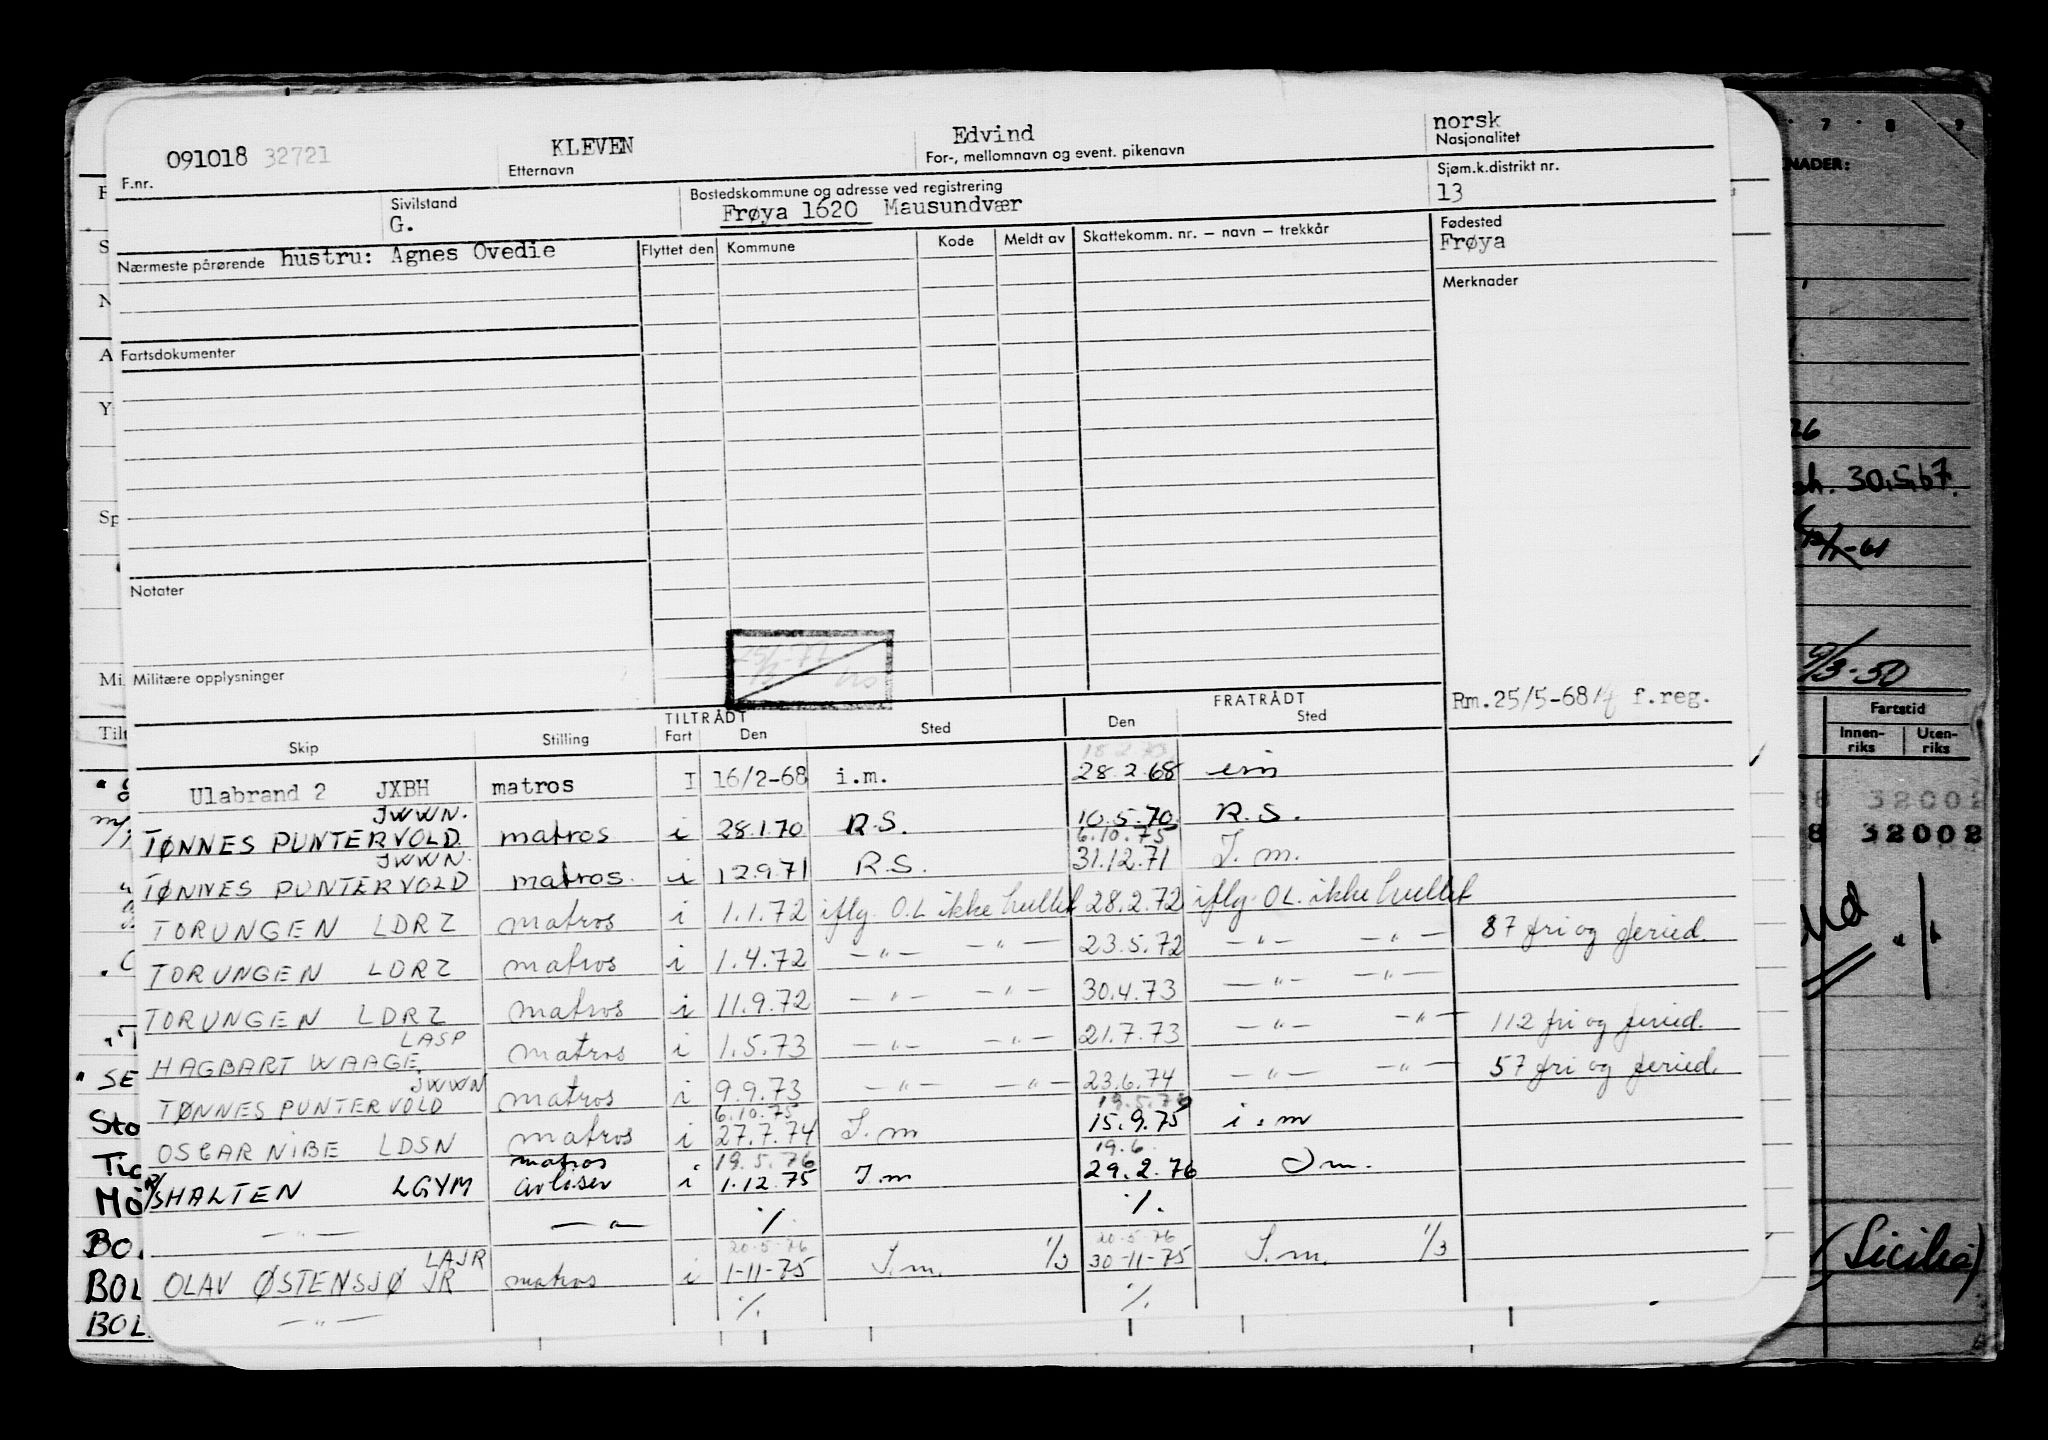 091018 32721
F.nr.
KLEVEN
Etternavn
Edvind
For-, mellomnavn og event. pikenavn
norsk
Nasjonalitet
Sivilstand
G.
Bostedskommune og adresse ved registrering
Frøya 1620 Mausundvær
Sjøm.k.distrikt nr.
13
Nærmeste pårørende hustru: Agnes Ovedie
Flyttet den Kommune Kode Meldt av Skattekomm. nr. — navn — trekkår
Fødested
Frøya
Merknader
Fartsdokumenter
Notater
Militære opplysninger
Rm.25/5-68 f.reg.
TILTRÅDT FRATRÅDT
Skip Stilling Fart Den Sted Den Sted
18.2.73
Ulabrand 2 JXBH matros I 16/2-68 i.m. 28.2.68 i m
JWWN.
TØNNES PUNTERVOLD matros i 28.1.70 R.S. 10.5.70 R.S.
JWWN. 6.10.75
TØNNES PUNTERVOLD matros. i 12.9.71 R.S. 31.12.71 I. m.
TORUNGEN LDRZ matros i 1.1.72 iflg. O.L ikke hullet 28.2.72 iflg. O L. ikke hullet
TORUNGEN LDRZ matros i 1.4.72 — " — — " — 23.5.72 — " — — " — 87 fri og feried.
TORUNGEN LDRZ matros i 11.9.72 — " — — " — 30.4.73 — " — — " —
LASP
HAGBART WAAGE matros i 1.5.73 — " — — " — 21.7.73 — " — — " — 112 fri og feried.
JWWN
TØNNES PUNTERVOLD matros i 9.9.73 — " — — " — 23.6.74 — " — — " — 57 fri og feried.
6.10.75
OSCAR NIBE LDSN matros i 27.7.74 I. m 15.9.75 i. m
matros 19.5.76 19.6.
R/S HALTEN LGYM avløser i 1.12.75 I. m 29.2.76 I m.
— " — — " — ./. ./.
LAJR 20-5-76 20-5-76
OLAV ØSTENSJØ JR matros i 1-11-75 I. m. 1/3 30-11-75 I. m. 1/3
— " — ./. ./.
7 8 9
NADER:
26
30.5.67.
9/3-50
Fartstid
Innen-riks Uten-riks
8 32002
8 32002
(Sicilia)
Sp
Mi
Til
SE
Sto
BOL
BOL